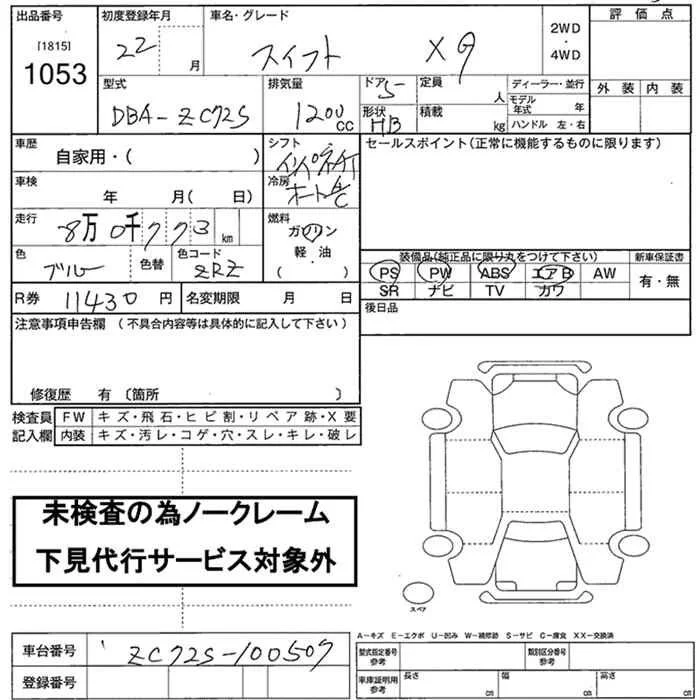 出品番号
[1815]
1053
初度登録年月
22 月
車名・グレード
スイフト XG
2WD
・
4WD
評価点
外装 内装
型式
DBA-ZC72S
排気量
1200 CC
ドア 5
形状 HB
定員 人
積載 kg
ディーラー・並行
モデル年式 年
ハンドル 左・右
車歴
自家用・( )
シフト
インパネAT
冷房
オートA/C
セールスポイント(正常に機能するものに限ります)
車検
年 月( 日)
走行
8万 0千 7 7 3 km
燃料
ガソリン
軽・油
( ・ )
色
ブルー
色替
色コード
ZRZ
装備品(純正品に限り丸をつけて下さい)
PS PW ABS エアB AW
SR ナビ TV カワ
新車保証書
有・無
R券 11430 円
名変期限 月 日
後日品
注意事項申告欄 (不具合内容等は具体的に記入して下さい)
修復歴 有 〔箇所 〕
検査員記入欄
FW キズ・飛石・ヒビ割・リペア跡・X要
内装 キズ・汚レ・コゲ・穴・スレ・キレ・破レ
未検査の為ノークレーム
下見代行サービス対象外
スペア
A-キズ E-エクボ U-凹み W-補修跡 S-サビ C-腐食 XX-交換済
車台番号 ZC72S-100507
登録番号
型式指定番号参考
類別区分番号参考
車庫証明用参考
長さ cm
幅 cm
高さ cm